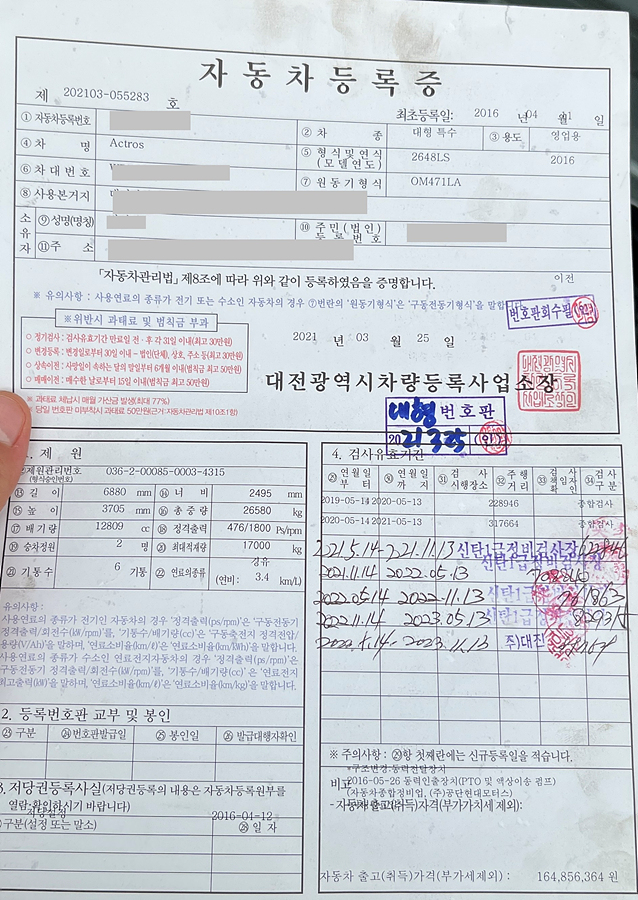 자동차등록증
제 202103-055283 호
최초등록일: 2016 년 04 월 일
① 자동차등록번호 ② 차 종 대형 특수 ③ 용도 영업용
④ 차 명 Actros ⑤ 형식 및 연식 (모델연도) 2648LS 2016
⑥ 차대번호 ⑦ 원동기형식 OM471LA
⑧ 사용본거지
소유자 ⑨ 성명(명칭) ⑩ 주민(법인)등록번호
⑪ 주 소
「자동차관리법」 제8조에 따라 위와 같이 등록하였음을 증명합니다.
이전
※ 유의사항 : 사용연료의 종류가 전기 또는 수소인 자동차의 경우 ⑦번란의 '원동기형식'은 '구동전동기형식'을 말합
번호판회수필
※위반시 과태료 및 범칙금 부과
○ 정기검사 : 검사유효기간 만료일 전·후 각 31일 이내(최고 30만원)
○ 변경등록 : 변경일로부터 30일 이내 - 법인(단체), 상호, 주소 등(최고 30만원)
○ 상속이전 : 사망일이 속하는 달의 말일부터 6개월 이내(범칙금 최고 50만원)
○ 매매이전 : 매수한 날로부터 15일 이내(범칙금 최고 50만원)
※ 과태료 체납시 매월 가산금 발생(최대 77%)
당일 번호판 미부착시 과태료 50만원(근거:자동차관리법 제10조1항)
2021 년 03 월 25 일
대전광역시차량등록사업소장
대형 번호판
2021.3.25 (인)
1. 제 원
제원관리번호 (형식승인번호) 036-2-00085-0003-4315
⑬ 길 이 6880 mm ⑭ 너 비 2495 mm
⑮ 높 이 3705 mm ⑯ 총 중 량 26580 kg
⑰ 배 기 량 12809 cc ⑱ 정격출력 476/1800 Ps/rpm
⑲ 승차정원 2 명 ⑳ 최대적재량 17000 kg
㉑ 기 통 수 6 기통 ㉒ 연료의종류 경유 (연비: 3.4 km/L)
유의사항:
사용연료의 종류가 전기인 자동차의 경우 '정격출력(ps/rpm)'은 '구동전동기
정격출력/회전수(kW/rpm)'를, '기통수/배기량(cc)'은 '구동축전지 정격전압/
용량(V/Ah)'을 말하며, '연료소비율(km/ℓ)'은 '연료소비율(km/kWh)'을 말합니다.
사용연료의 종류가 수소인 연료전지자동차의 경우 '정격출력(ps/rpm)'은
'구동전동기 정격출력/회전수(kW/rpm)'를, '기통수/배기량(cc)'은 '연료전지
최고출력(kW)'을 말하며, '연료소비율(km/ℓ)'은 '연료소비율(km/kg)'을 말합니다.
2. 등록번호판 교부 및 봉인
㉓ 구분 ㉔ 번호판발급일 ㉕ 봉인일 ㉖ 발급대행자확인
3. 저당권등록사실(저당권등록의 내용은 자동차등록원부를
열람·확인하시기 바랍니다)
저당설정 2016-04-12
구분(설정 또는 말소) ㉘ 일 자
4. 검사유효기간
㉙ 연월일부터 ㉚ 연월일까지 ㉛ 검사시행장소 ㉜ 주행거리 ㉝ 검사책임자확인 ㉞ 검사구분
2019-05-14 2020-05-13 228946 종합검사
2020-05-14 2021-05-13 317664 종합검사
2021.5.14-2021.11.13 신탄1급정비검사장
2021.11.14 2022.05.13 신탄1급정비검사장
2022.05.14 2022.11.13 신탄1급
2022.11.14 2023.05.13 신탄1급
2023.11.13 주)대진
※ 주의사항 : ㉙항 첫째란에는 신규등록일을 적습니다.
비고
*구조변경:동력전달장치
2016-05-26 동력인출장치(PTO 및 액상이송 펌프)
(자동차종합정비업, (주)공단현대모터스)
- 자동차 출고(취득)가격(부가가치세 제외):
자동차 출고(취득)가격(부가세제외) : 164,856,364 원